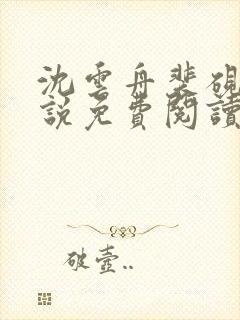 沈雲舟裴硯
說免費閱讀
破壺..